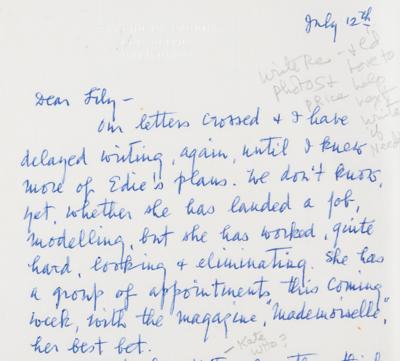 July 12th
write Re -
photos &
price help
Dear Lily -
Our letters crossed & I have
delayed writing, again, until I knew
more of Edie's plans. We don't know,
yet, whether she has landed a job,
modelling, but she has worked, quite
hard, looking & eliminating. She has
a group of appointments, this coming
week, with the magazine, "Mademoiselle",
her best bet.
- Kate
who?